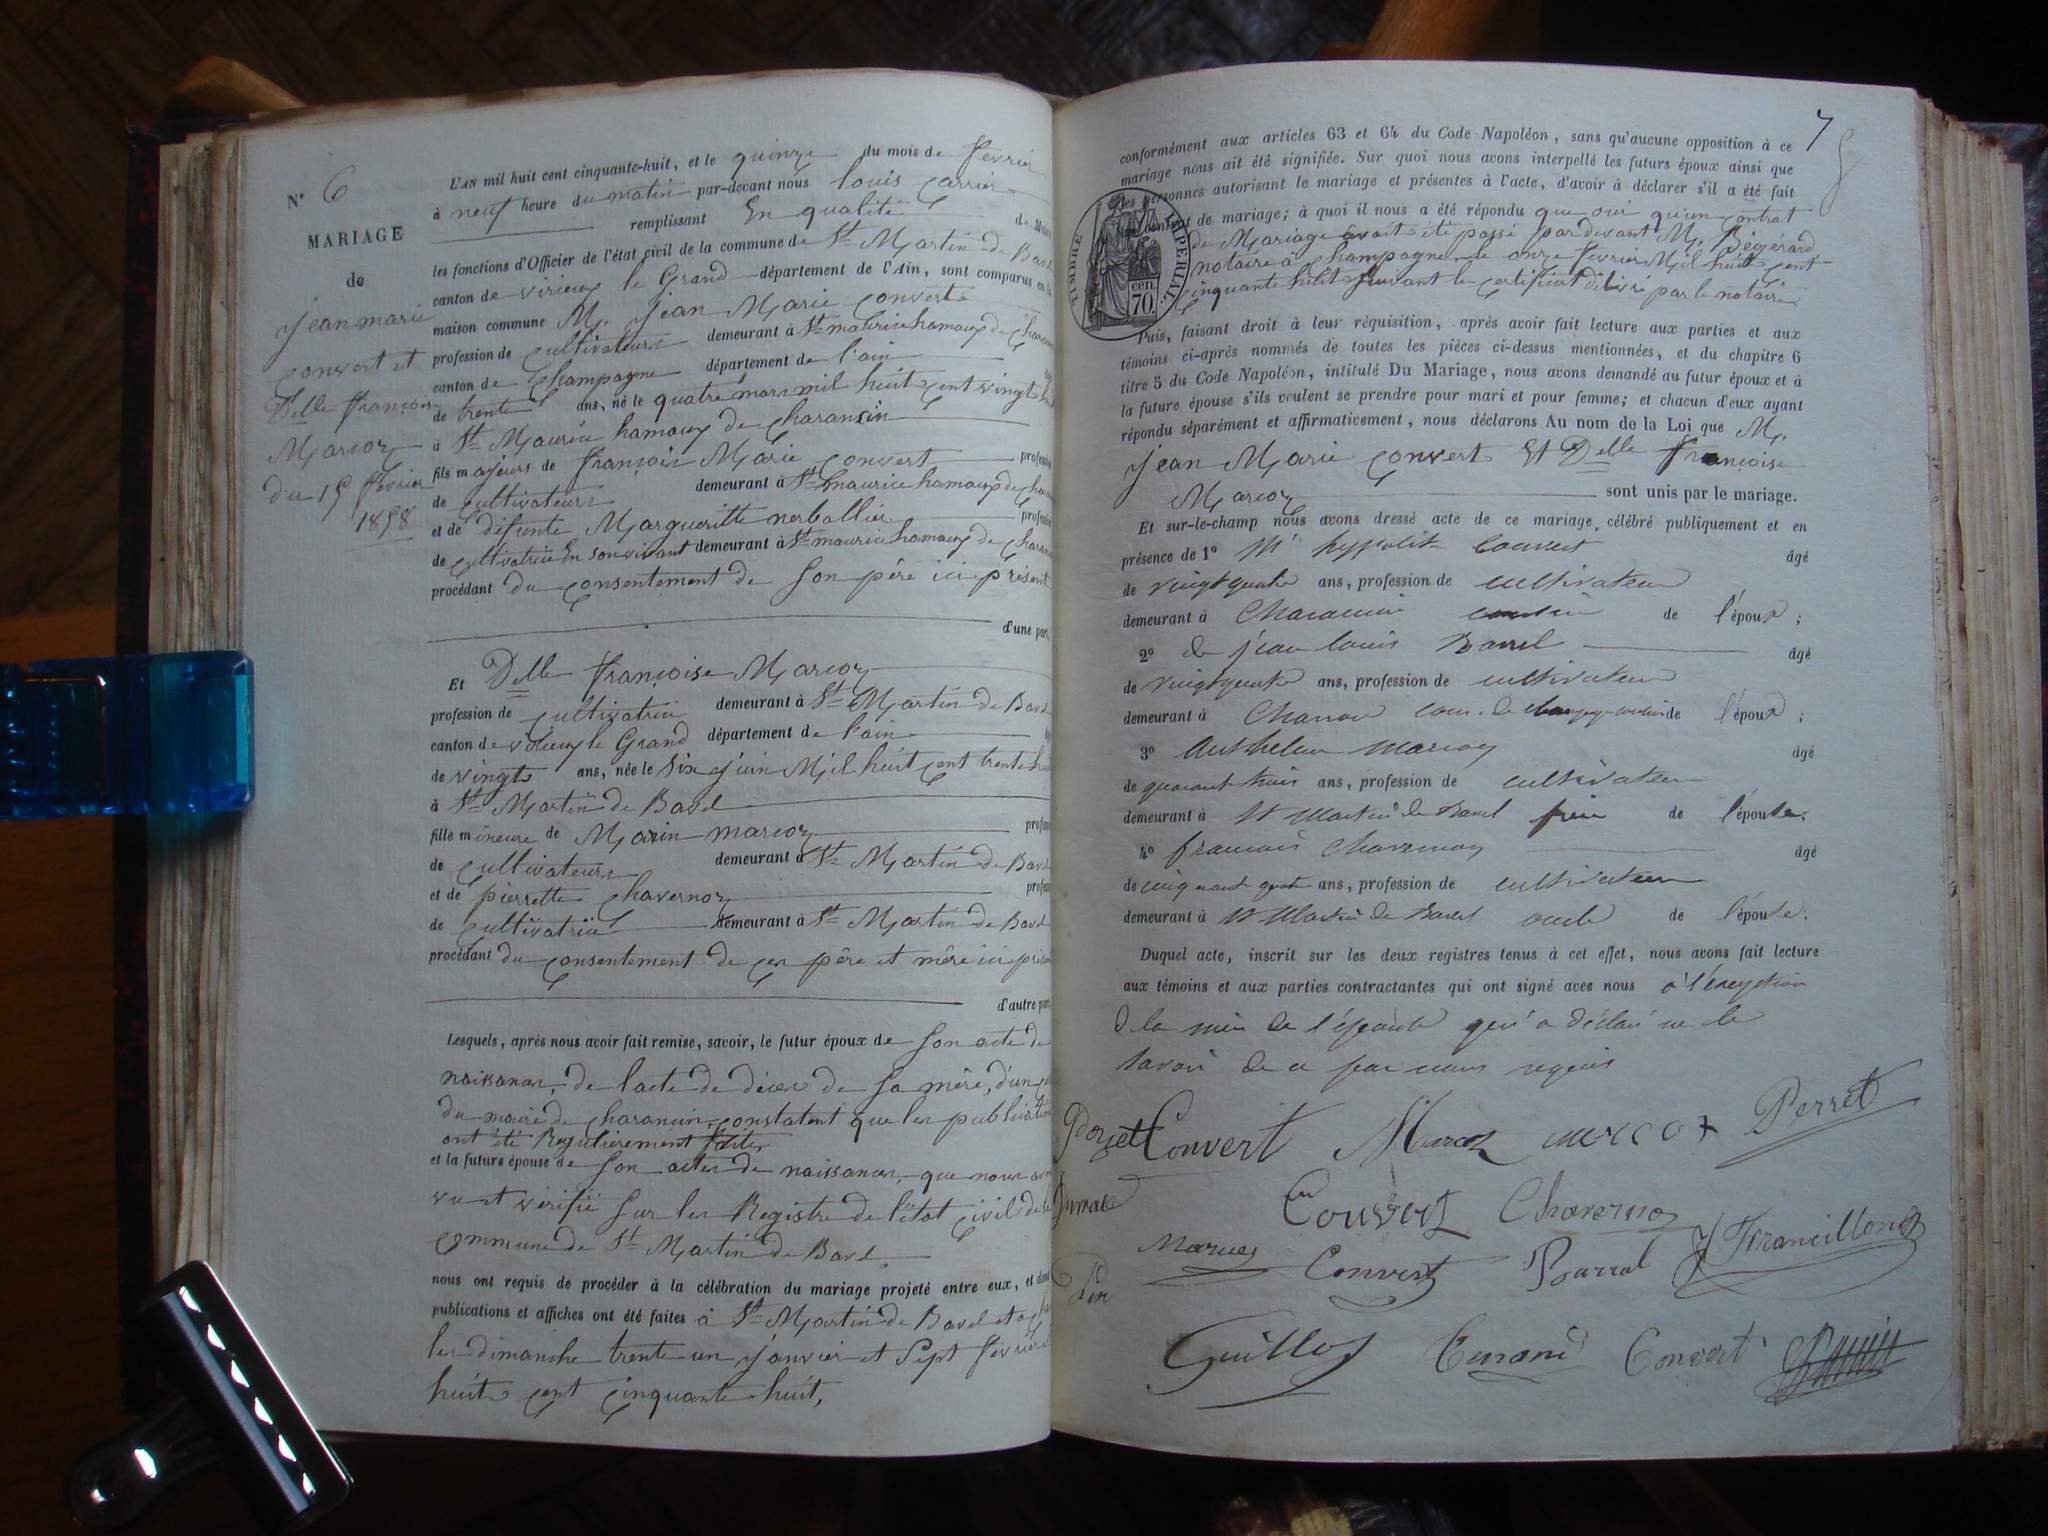 N° 6
MARIAGE
de
jean marie
convert et
Delle françoise
Marcoz
du 15 février
1858
L'AN mil huit cent cinquante-huit, et le quinze du mois de février
à neuf heure du matin par-devant nous louis carrier
remplissant En qualité de Maire
les fonctions d'Officier de l'état civil de la commune de St Martin de Bavel
canton de virieux le Grand département de l'Ain, sont comparus en la
maison commune M. jean Marie convert
profession de cultivateurs demeurant à St maurice hamaux de charan
canton de Champagne département de l'ain
de trente ans, né le quatre mars mil huit cent vingt huit
à St Maurice hamaux de charansin
fils majeurs de françois Marie convert profession
de cultivateurs demeurant à St maurice hamaux de cha
et de défunte Margueritte nerballier profession
de cultivatrice En son vivant demeurant à St maurice hamaux de charan
procédant du consentement de son père ici présent
d'une part,
Et Delle françoise Marcoz
profession de cultivatrice demeurant à St Martin de Bavel
canton de virieux le Grand département de l'ain
de vingt ans, née le six juin Mil huit cent trente huit
à St Martin de Bavel
fille mineure de Marin marcoz profess
de cultivateurs demeurant à St Martin de Bavel
et de pierrette chavernoz profess
de cultivatrice demeurant à St Martin de Bavel
procédant du consentement de ces père et mère ici présen
d'autre part.
Lesquels, après nous avoir fait remise, savoir, le futur époux de son acte de
naissances, de l'acte de décès de sa mère, d'un
du maire de charancin, constatent que les publication
ont été Regulièrement faites
et la future épouse de son actes de naissances, que nous avons
vu et vérifié sur les Registre de l'état civil de la
commune de St Martin de Bavel
nous ont requis de procéder à la célébration du mariage projeté entre eux, et dont
publications et affiches ont été faites à St Martin de Bavel et a
les dimanche trente un janvier et sept février
huit cent cinquante huit,
7
conformément aux articles 63 et 64 du Code Napoléon, sans qu'aucune opposition à ce
mariage nous ait été signifiée. Sur quoi nous avons interpellé les futurs époux ainsi que
les personnes autorisant le mariage et présentes à l'acte, d'avoir à déclarer s'il a été fait
contrat de mariage; à quoi il nous a été répondu que oui qu'un contrat
de Mariage avait été passé par devant M. Bégérard
notaire à champagne le onze février Mil huit cent
cinquante huit suivant le certificat délivré par le notaire
TIMBRE IMPERIAL
70 cen.
Puis, faisant droit à leur réquisition, après avoir fait lecture aux parties et aux
témoins ci-après nommés de toutes les pièces ci-dessus mentionnées, et du chapitre 6
titre 5 du Code Napoléon, intitulé Du Mariage, nous avons demandé au futur époux et à
la future épouse s'ils veulent se prendre pour mari et pour femme; et chacun d'eux ayant
répondu séparément et affirmativement, nous déclarons Au nom de la Loi que M.
jean Marie convert Et Delle françoise
Marcoz sont unis par le mariage.
Et sur-le-champ nous avons dressé acte de ce mariage célébré publiquement et en
présence de 1° Mr hyppolite Convert âgé
de vingt quatre ans, profession de cultivateur
demeurant à Charancin cousin de l'époux;
2° de jean louis Barrel âgé
de vingt quatre ans, profession de cultivateur
demeurant à com. de de l'époux;
3° Anthelme Marcoz âgé
de quarant trois ans, profession de cultivateur
demeurant à St Martin de Bavel frère de l'épouse;
4° françois Chavernoz âgé
de cinquant quatre ans, profession de cultivateur
demeurant à St Martin de Bavel oncle de l'épouse.
Duquel acte, inscrit sur les deux registres tenus à cet effet, nous avons fait lecture
aux témoins et aux parties contractantes qui ont signé avec nous à l'exception
de la mère de l'épouse qui a déclaré ne le
savoir de ce par nous requis
Convert Marcoz marcoz Perret
Convert Chavernoz
Marcoz Convert J Francillon
Guilloz Tenand Convert